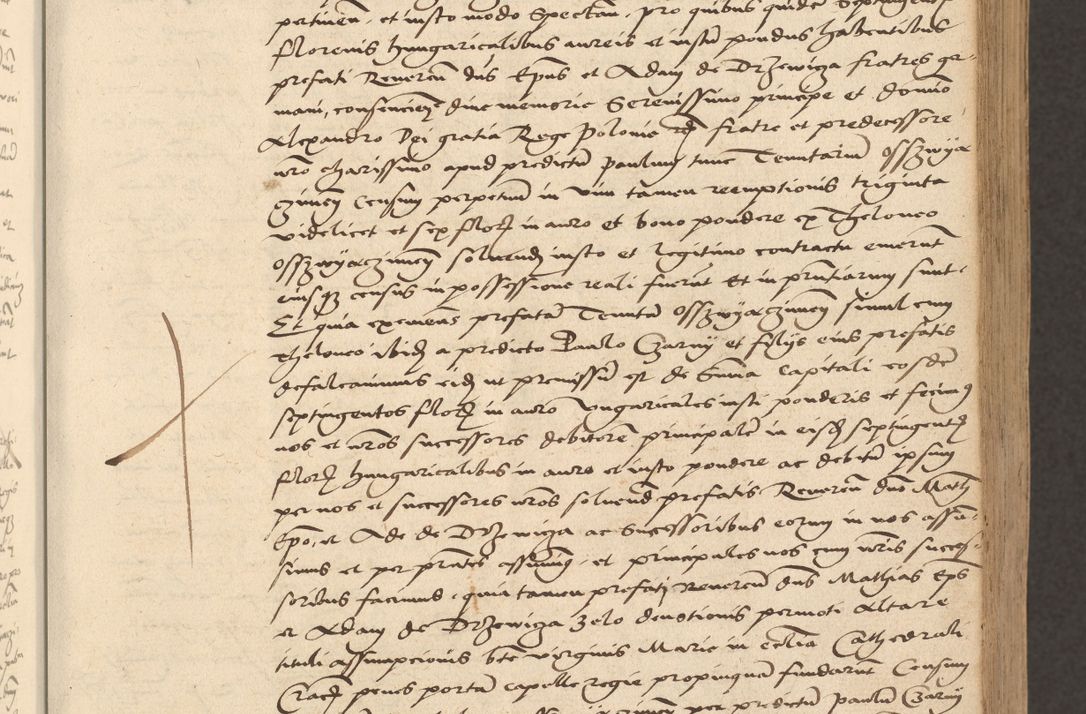 pertinen. et iusto modo spectan. pro quibus quidem septingentis
florenis hungaricalibus aureis et iusti pondus habentibus
prefati Reveren dns Epus et Adam de Drzewicza fratres ger-
mani, consencien dive memorie Serenissimo principe et domino
Alexandro Dei gratia Rege Polonie fratre et predecessore
nro charissimo apud predictu paulum tunc Tenutariu Osszwya
czimen censum perpetuu in vim tamen reemptionis triginta
videlicet et sex flor in auro et bono pondere ex Theloneo
Osszwyaczimen solvend iusto et legitimo contractu emerut
eiusq census in possessione reali fuerut et in pntiarum sunt.
Et quia exemens prefatam Tenutam Osszwyaczimen simul cum
theloneo ibid a predicto Paulo Czarny et filys eius prefatis
defalcavimus eid ut premissu est de suma capitali eosde
septingentos flor in auro Ungaricales iusti ponderis et fecim
nos et nros successores debitore principale in eisd septingent
flor hungaricalibus in auro et iusto pondere ac debitu ipsum
per nos et successores nros solvend prefatis Reveren dno Math
Epo, et Ade de Drzewicza ac successoribus eorum in nos assu-
simus et per pntes assumim. et principales nos cum nris succes-
soribus facimus. quia tamen prefati Reveren dns Mathias Eps
et Adam de Drzewicza zelo devotionis permoti Altare
tituli assumpcionis bte virginis Marie in ecclia Cathedrali
Crac penes portam capelle regie propinqua fundarut Censum
per predictu paulu Czarny